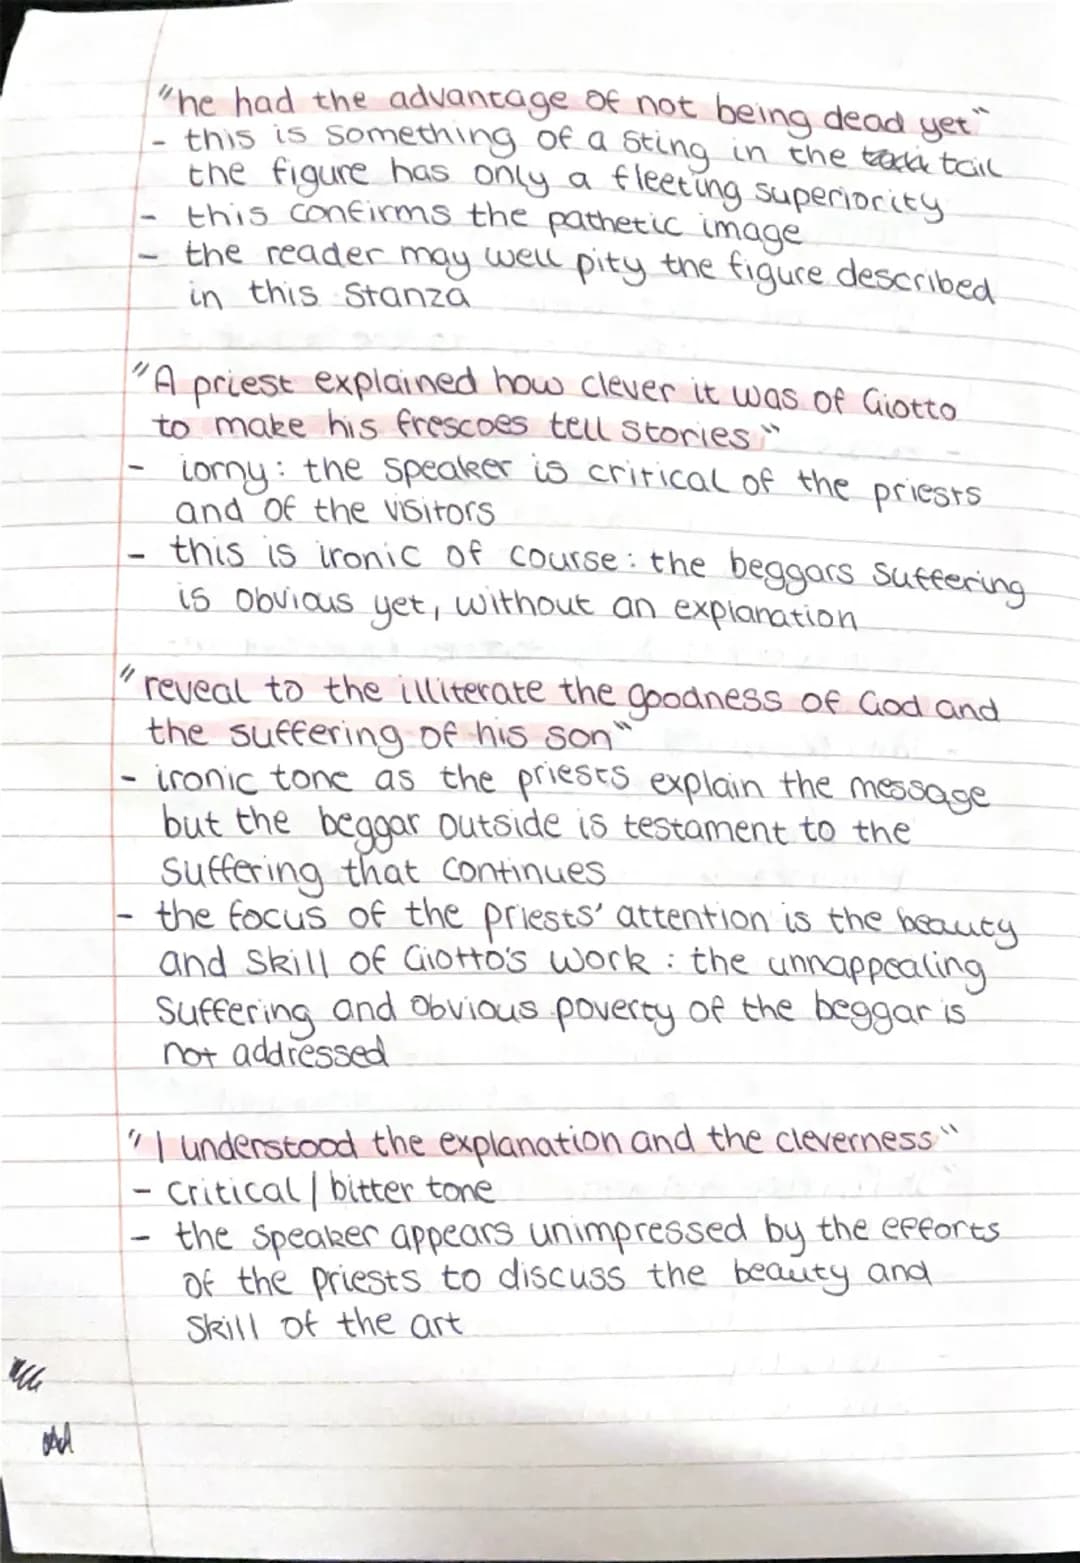 "he had the advantage of not being dead yet"
- this is something of a sting in the tail
the figure has only a fleeting superiority
- this confirms the pathetic image
- the reader may well pity the figure described
in this stanza
"A priest explained how clever it was of Giotto
to make his frescoes tell stories"
- iorny: the speaker is critical of the priests
and of the visitors
- this is ironic of course: the beggars suffering
is obvious yet, without an explanation
"reveal to the illiterate the goodness of God and
the suffering of his son"
- ironic tone as the priests explain the message
but the beggar outside is testament to the
suffering that continues
- the focus of the priests' attention is the beauty
and skill of Giotto's work: the unnappealing
suffering and obvious poverty of the beggar is
not addressed
"I understood the explanation and the cleverness"
- critical/bitter tone
- the speaker appears unimpressed by the efforts
of the priests to discuss the beauty and
skill of the art